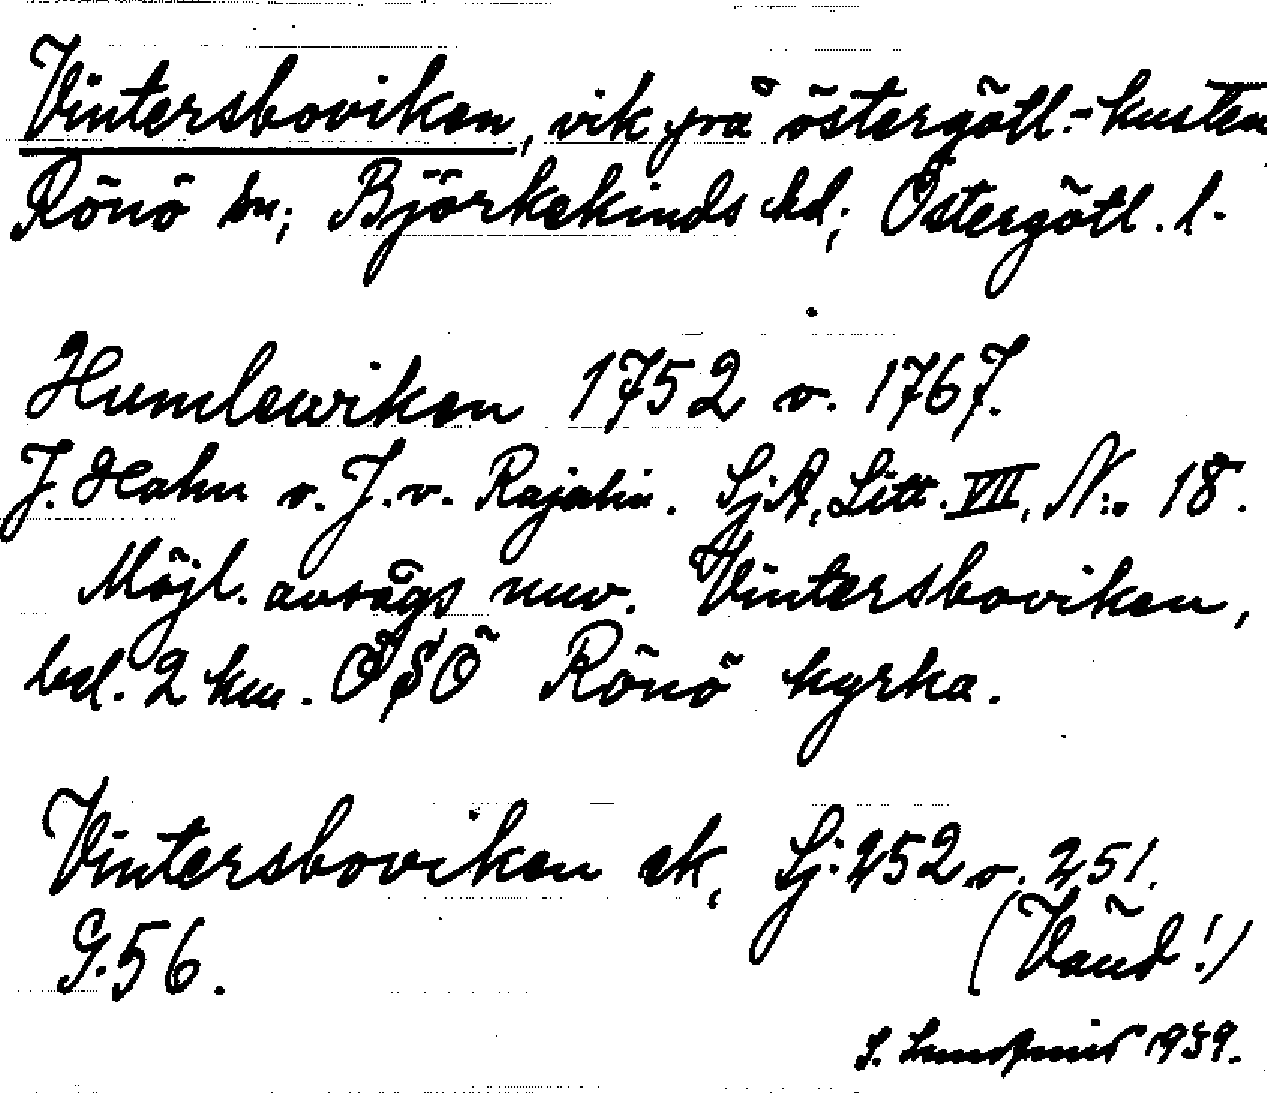 Vintersboviken, vik på östergötl.-kusten
Rönö sn; Björkekinds hd; Östergötl. l.
Humlewiken 1752 o. 1767.
J. Hahn o. J. v. Rajalin. SjA, Litt. VII, N:o 18.
Möjl. avsågs nuv. Vintersboviken,
bel. 2 km. OSO Rönö kyrka.
Vintersboviken ek, Sj: 252 o. 251.
G. 56.
(Vänd!)
S. 1939.